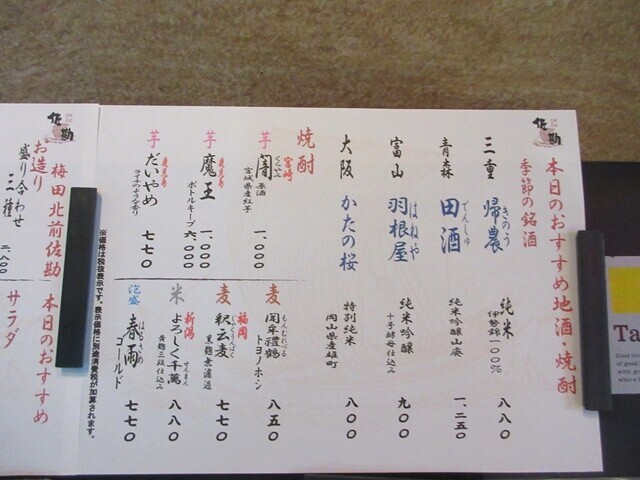 佐勘
本日のおすすめ地酒・焼酎
季節の銘酒
三重 帰農 きのう 純米 伊勢錦100% 八八〇
青森 田酒 でんしゅ 純米吟醸山廃 一、二五〇
富山 羽根屋 はねや 純米吟醸 十号酵母仕込み 九〇〇
大阪 かたの桜 特別純米 岡山県産雄町 八〇〇
焼酎
宮崎
芋 闇 くらやみ 原酒 宮城県産紅芋 一、〇〇〇
鹿児島
芋 魔王 一、〇〇〇
ボトルキープ 六、〇〇〇
鹿児島
芋 だいやめ ライチのような香り 七七〇
麦 閻牟禮鶴 もんむれづる トヨノホシ 八五〇
福岡
麦 釈云麦 しゃくうんばく 黒麹無濾過 七七〇
新潟
米 よろしく千萬 せんまん 黄麹三段仕込み 八八〇
泡盛 春雨 はるさめ ゴールド 七七〇
※価格は税抜表示です。表示価格に別途消費税が加算されます。
佐勘
梅田北前佐勘 本日のおすすめ
お造り
盛り合わせ
三種 二、八〇〇
サラダ
Ta